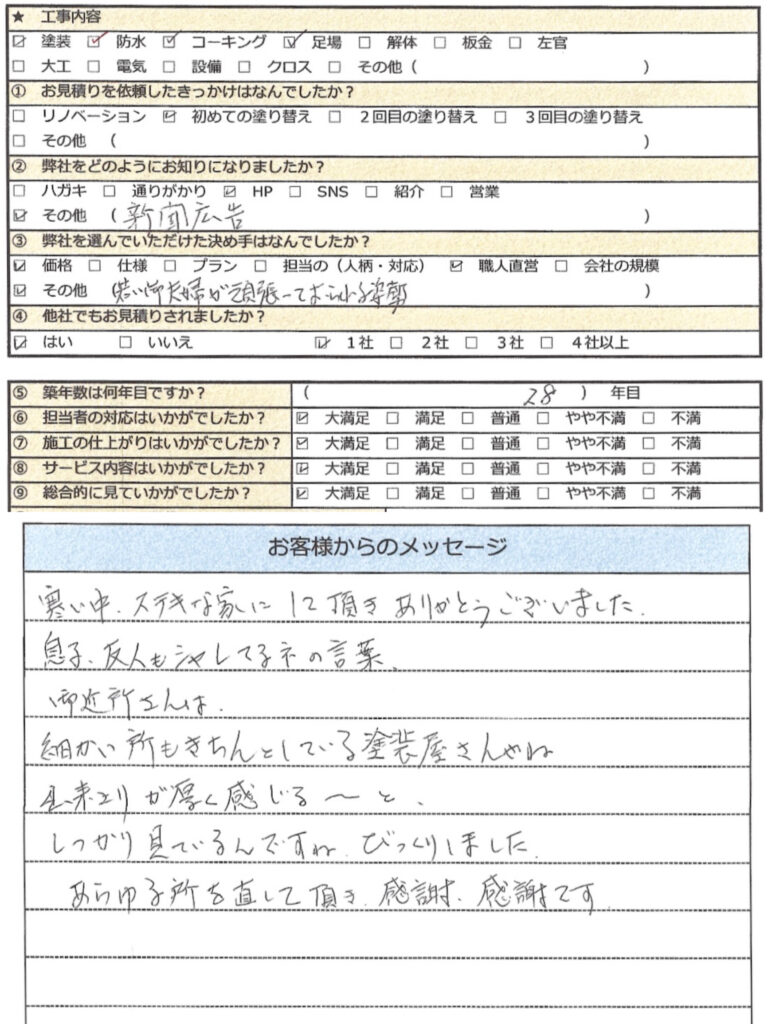 ★ 工事内容
☑ 塗装 ☑ 防水 ☑ コーキング ☑ 足場 □ 解体 □ 板金 □ 左官
□ 大工 □ 電気 □ 設備 □ クロス □ その他 ( )
① お見積りを依頼したきっかけはなんでしたか？
□ リノベーション ☑ 初めての塗り替え □ 2回目の塗り替え □ 3回目の塗り替え
□ その他 ( )
② 弊社をどのようにお知りになりましたか？
□ ハガキ □ 通りがかり ☑ HP □ SNS □ 紹介 □ 営業
☑ その他 (新聞広告 )
③ 弊社を選んでいただけた決め手はなんでしたか？
☑ 価格 □ 仕様 □ プラン □ 担当の（人柄・対応） ☑ 職人直営 □ 会社の規模
☑ その他 若い御夫婦が頑張っておられる姿 )
④ 他社でもお見積りされましたか？
☑ はい □ いいえ ☑ 1社 □ 2社 □ 3社 □ 4社以上
⑤ 築年数は何年目ですか？ ( 28 ) 年目
⑥ 担当者の対応はいかがでしたか？ ☑ 大満足 □ 満足 □ 普通 □ やや不満 □ 不満
⑦ 施工の仕上がりはいかがでしたか？ ☑ 大満足 □ 満足 □ 普通 □ やや不満 □ 不満
⑧ サービス内容はいかがでしたか？ ☑ 大満足 □ 満足 □ 普通 □ やや不満 □ 不満
⑨ 総合的に見ていかがでしたか？ ☑ 大満足 □ 満足 □ 普通 □ やや不満 □ 不満
お客様からのメッセージ
寒い中、ステキな家にして頂きありがとうございました.
息子、友人もシャレてるネの言葉、
御近所さんは、
細かい所もきちんとしている塗装屋さんやね
出来上りが厚く感じる〜と、
しっかり見ているんですね、びっくりしました.
あらゆる所を直して頂き、感謝、感謝です